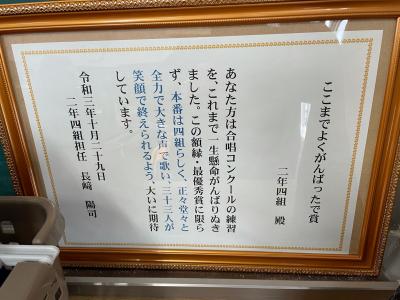 ここまでよくがんばったで賞
二年四組　殿
あなた方は合唱コンクールの練習
を、これまで一生懸命がんばりぬき
ました。この額縁・最優秀賞に限ら
ず、本番は四組らしく、正々堂々と
全力で大きな声で歌い、三十三人が
笑顔で終えられるよう、大いに期待
しています。
令和三年十月二十九日
二年四組担任　長崎　陽司